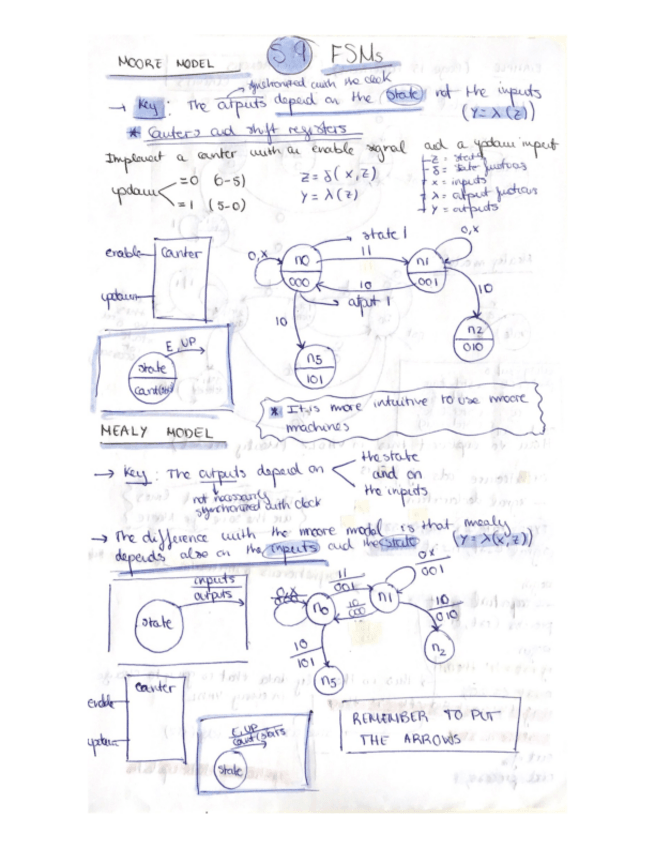 MOORE MODEL
5.9 FSMs
synchronized with the clock
→ Key: The outputs depend on the state not the inputs
(Y=λ(z))
* Counters and shift registers
Implement a counter with an enable signal and a updown input
updown
=0 (0-5)
=1 (5-0)
Z = δ(X,Z)
Y = λ(Z)
Z = state
δ = state functions
X = inputs
λ = output functions
Y = outputs
enable
updown
counter
state 1
0,X
n0
000
11
10
n1
001
0,X
output 1
10
n5
101
10
n2
010
E, UP
state
* It is more intuitive to use moore
machines
MEALY MODEL
→ Key: The outputs depend on
the state
and on
the inputs
not necessarily
synchronized with clock
→ The difference with the moore model is that mealy
depends also on the inputs and the state
(Y=λ(X,Z))
inputs
outputs
state
0,X
n0
11
001
10
000
n1
0X
001
10
010
n2
10
101
n5
enable
updown
counter
E, UP
state
REMEMBER TO PUT
THE ARROWS